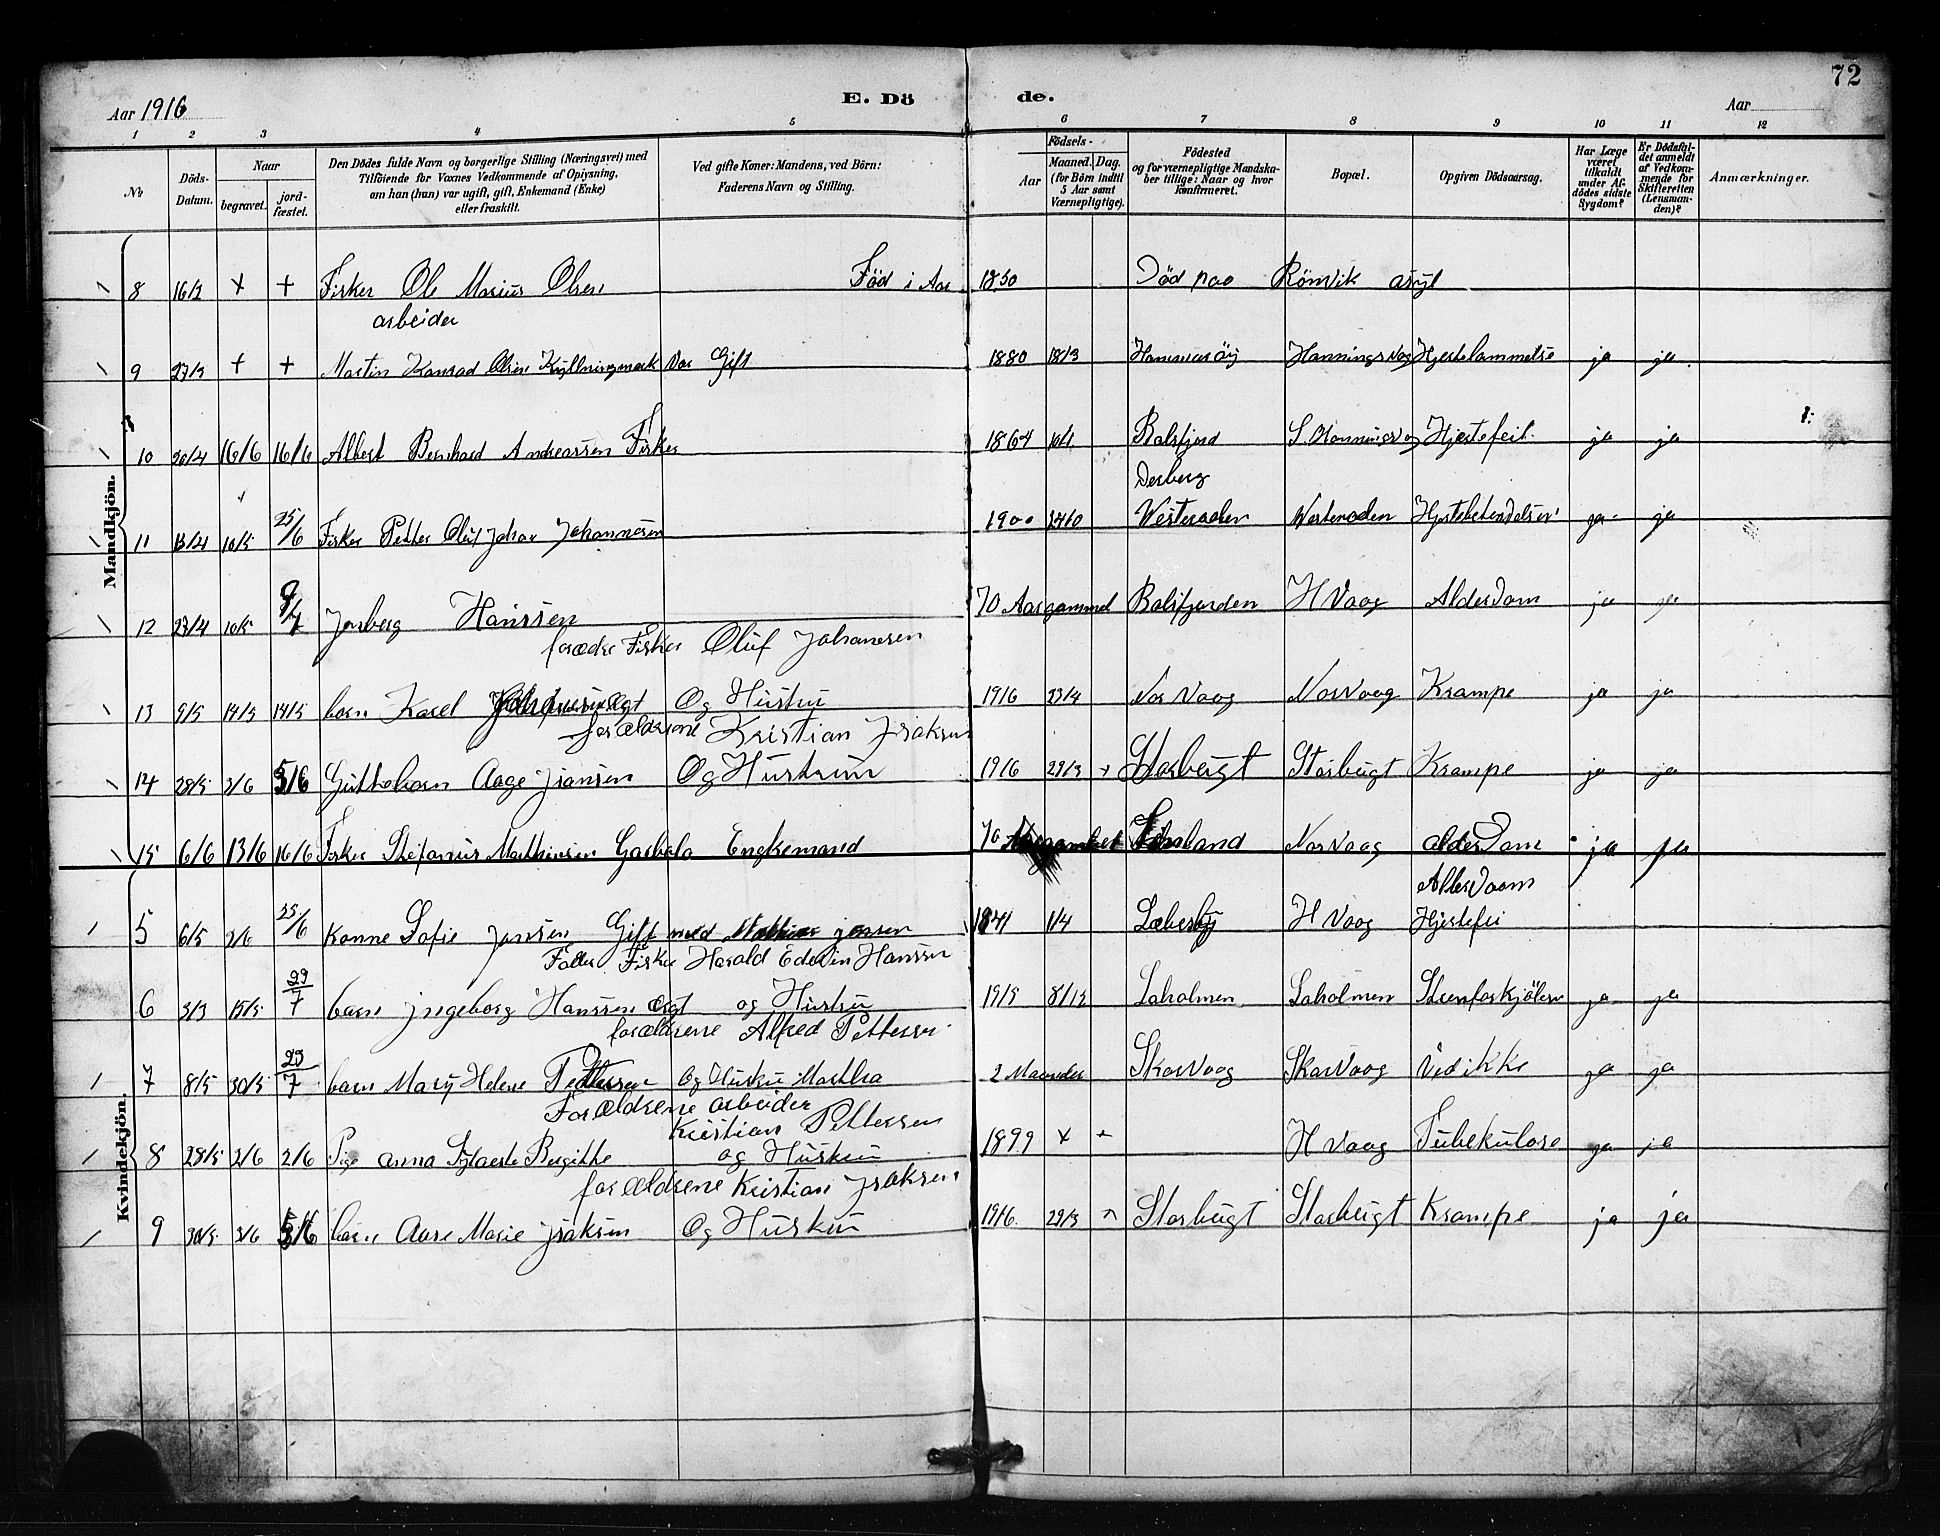 72
Aar 1916 E. Dö de. Aar
1 2 3 4 5 6 7 8 9 10 11 12
№ Döds-Datum. Naar begravet. jordfæstet. Den Dödes fulde Navn og borgerlige Stilling (Næringsvei) med Tilföiende for Voxnes Vedkommende af Oplysning, om han (hun) var ugift, gift, Enkemand (Enke) eller fraskilt. Ved gifte Koner: Mandens, ved Börn: Faderens Navn og Stilling. Aar Födsels- Maaned. Dag. (for Börn indtil 5 Aar samt Værnepligtige). Födested og for værnepligtige Mandskaber tillige: Naar og hvor Konfirmeret. Bopæl. Opgiven Dödsaarsag. Har Læge været tilkaldt under Afdödes sidste Sygdom? Er Dödsfaldet anmeldt af Vedkommende for Skifteretten (Lensmanden)? Anmærkninger.
Mandkjön.
8 + + Fisker Ole Marius Olsen Föd i Aar 1850 Död paa Rönvik asyl
arbeider
9 + + Martin Konrad Olsen Var Gift 1880 18/3 Hammeröy Honningsvog Hjertelammelse ja ja
10 20/4 16/6 16/6 Albert Bernhard Andreassen Fisker 1864 Balsfjord S. Honningsvog Hjertefeil ja ja
25/6
11 13/4 10/5 Fisker Petter Oluf Johannesen 1900 24/10 Vesteraalen Vesteraalen ja ja
12 23/4 10/5 Hanssen 70 Aar gammel Balsfjorden H Vaag Alderdom ja ja
Fisker Oluf Johansen
13 9/5 14/5 14/5 barn Karel Og Hustru 1916 23/4 Nor Vaag Nor Vaag Krampe ja ja
forældrene Kristian Isaksen
14 28/5 3/6 5/6 Aage Og Hustrue 1916 29/3 Storbugt Storbugt Krampe ja ja
15 6/6 13/6 16/6 Fisker Stefanus Mathisen Garbala Enkemand 70 Nor Vaag alderdom ja ja
Kvindekjön.
Alderdom
25/6
5 6/5 3/6 Konne Sofie Jensen Gift med Mathias jensen 1841 1/4 Lebesby H Vaag Hjertefei
Fader Fisker Harald Edevin Hanssen
29/7
6 3/3 15/5 barn jngeborg Hanssen ægt og Hustru 1915 8/12 Laholmen Laholmen ja ja
forældrene Alfred Pettersen
29/7
7 8/5 30/5 barn Mary Helene Pettersen og Hustru Martha 2 Maaneder Skarvaag Skarvaag Ved ikke ja ja
Forældrene arbeider
Kristian Pettersen
8 28/5 2/6 2/6 Pige anna Birgitte og Hustru 1899 + H Vaag Tubekulose ja ja
forældrene Kristian Isaksen
9 30/5 3/6 5/6 barn Aase Marie Isaksen Og Hustru 1916 29/3 Storbugt Storbugt Krampe ja ja